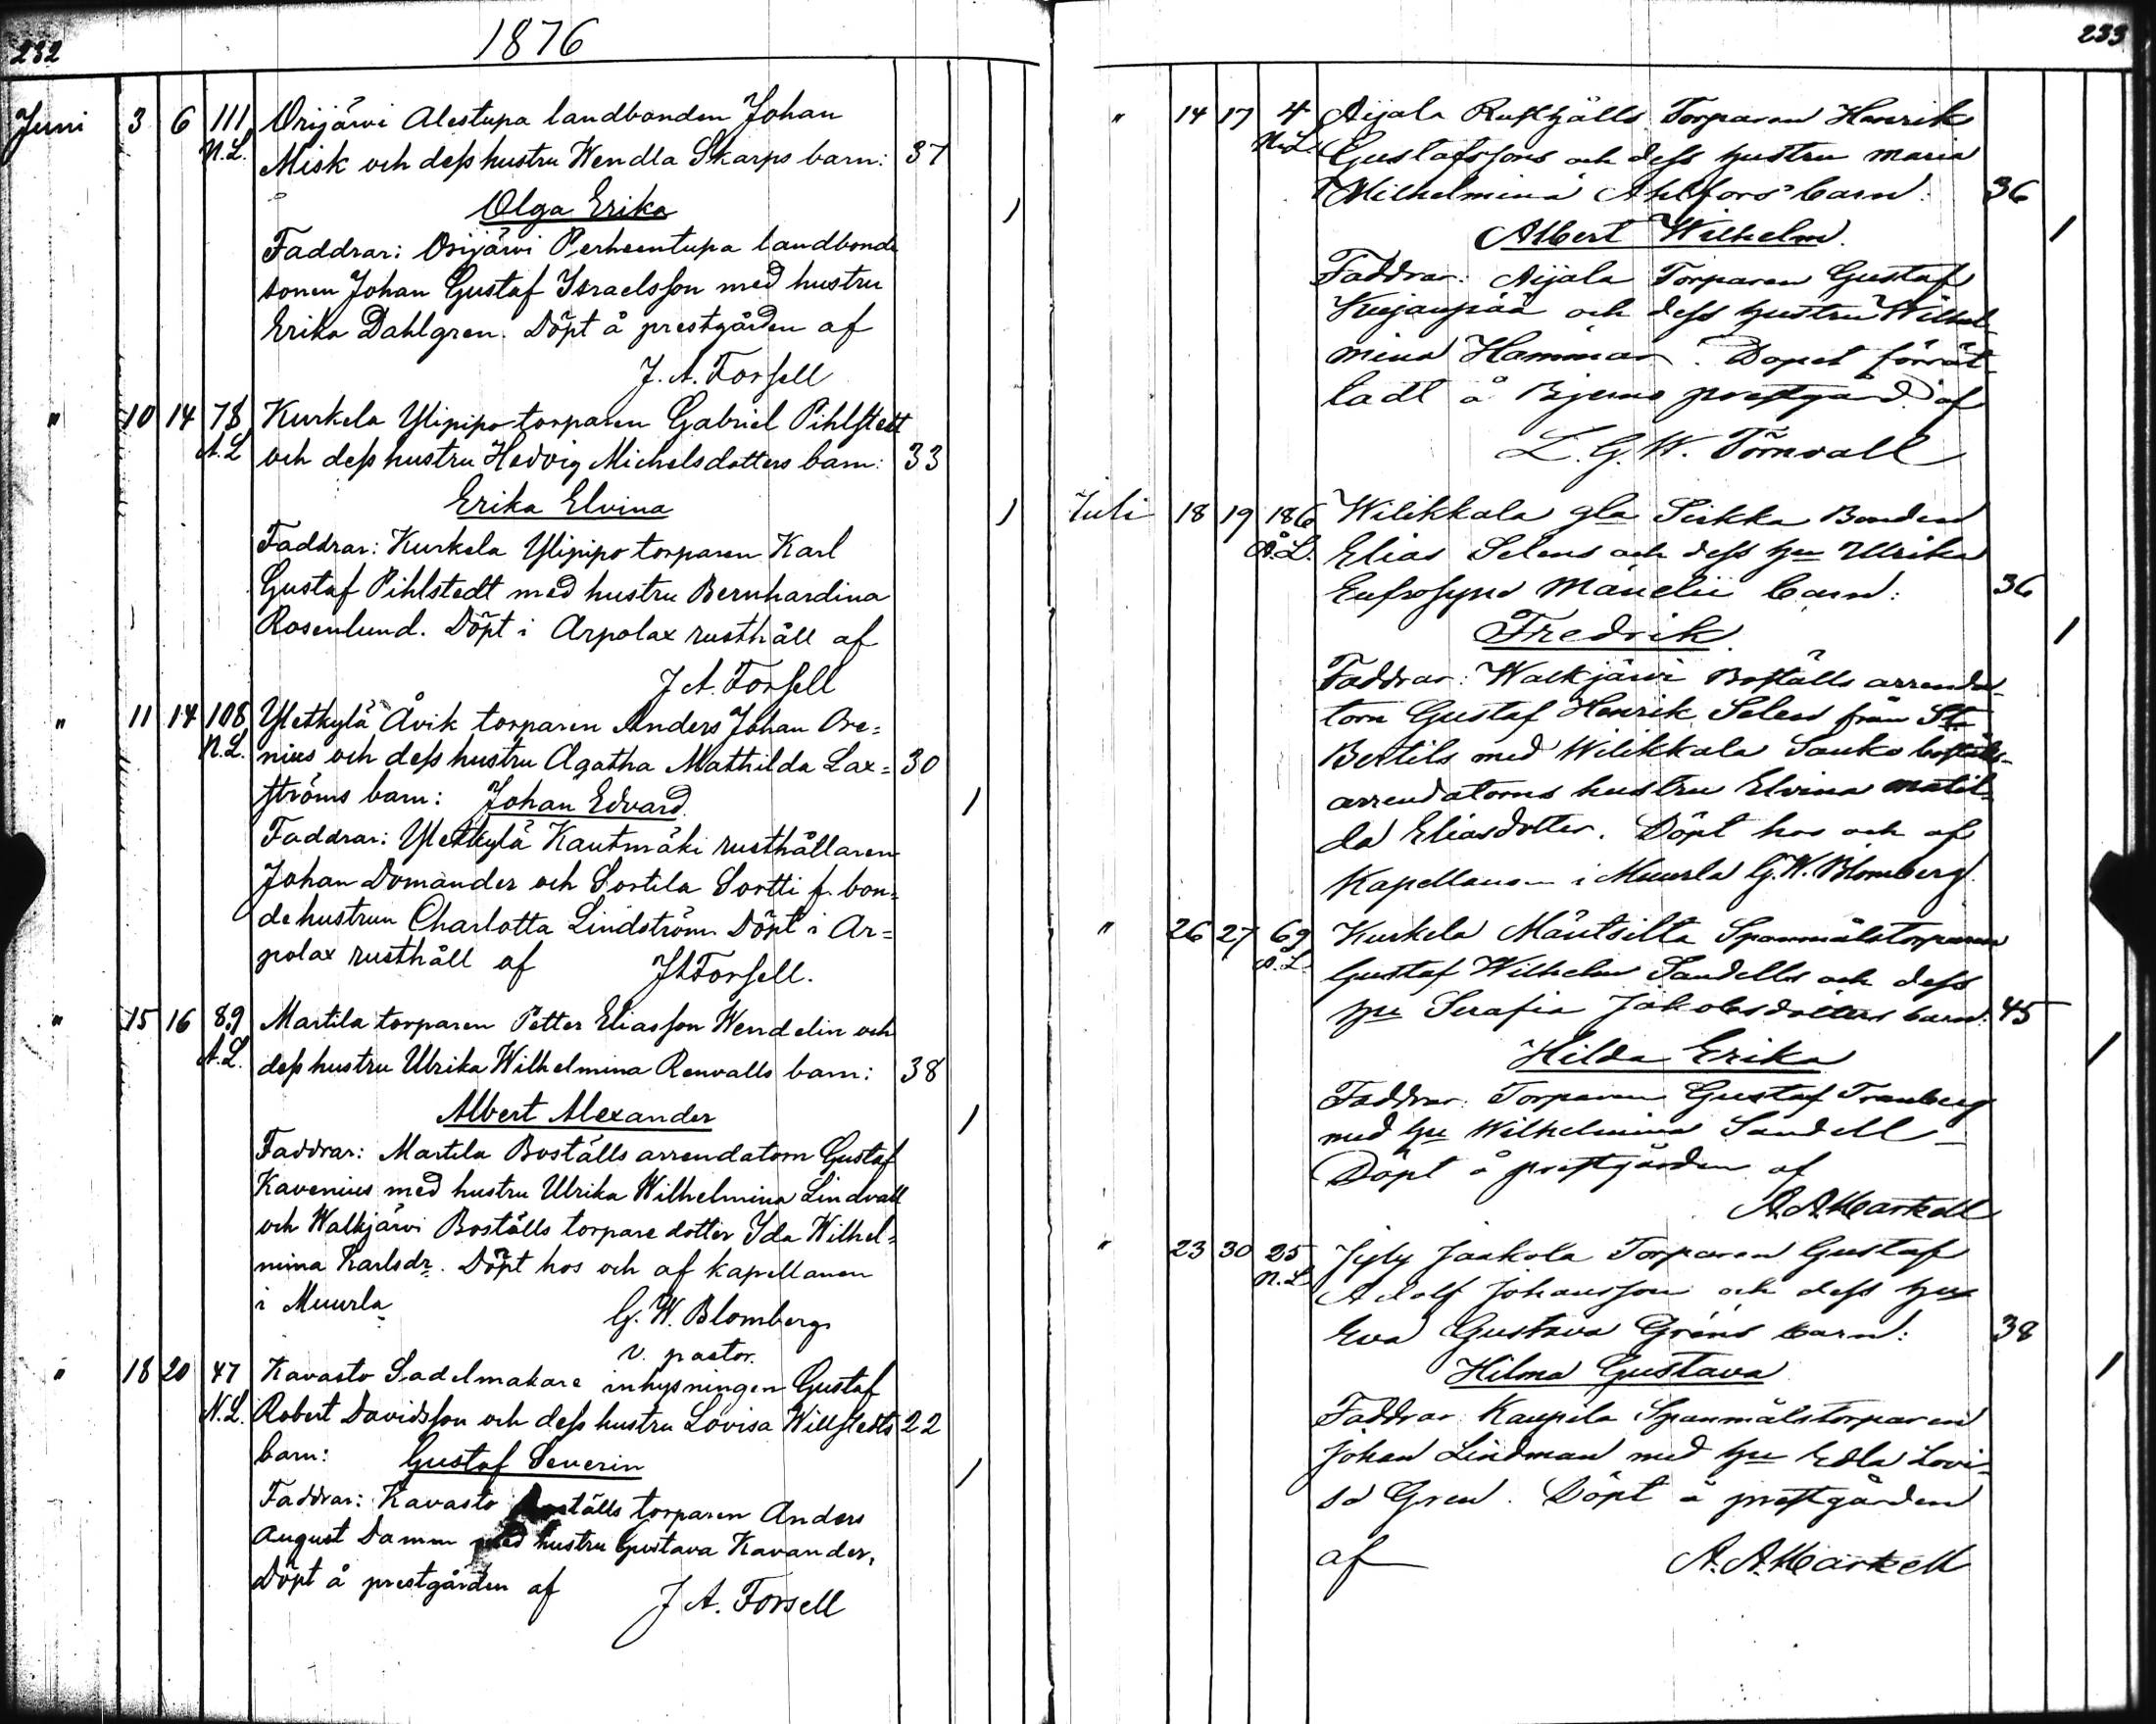 232
1876
Juni 3 6 111 Orijärvi Alestupa landbonden Johan
N.L. Misk och dess hustru Wendla Skarps barn: 37
Olga Erika
Faddrar: Orijärvi Perheentupa landbonde
sonen Johan Gustaf Israelsson med hustru
Erika Dahlgren. Döpt å prestgården af
J. A. Forsell
" 10 14 78 Kurkela Ylipipo torparen Gabriel Pihlstedt
A.L och dess hustru Hedvig Michelsdotters barn: 33
Erika Elvina
Faddrar: Kurkela Ylipipo torparen Karl
Gustaf Pihlstedt med hustru Bernhardina
Rosenlund. Döpt i Arpolax rusthåll af
J A. Forsell
" 11 14 108 Yletkylä Åvik torparen Anders Johan Ore=
N.L. nius och dess hustru Agatha Mathilda Lax= 30
ströms barn: Johan Edvard
Faddrar: Yletkylä Kautmäki rusthållaren
Johan Domander och Sortila Sortti f. bon=
dehustrun Charlotta Lindström. Döpt i Ar=
polax rusthåll af J A Forsell.
" 15 16 89 Martila torparen Petter Eliasson Wendelin och
A.L. dess hustru Ulrika Wilhelmina Renvalls barn: 38
Albert Alexander
Faddrar: Martila Boställs arrendatorn Gustaf
Kavenius med hustru Ulrika Wilhelmina Lindvall
och Walkjärvi Boställs torpare dotter Ida Wilhel=
mina Karlsdr. Döpt hos och af kapellanen
i Muurla G. W. Blomberg
v. pastor.
" 18 20 47 Kavasto Sadelmakare inhysningen Gustaf
N.L. Robert Davidsson och dess hustru Lovisa Willstedts 22
barn: Gustaf Severin
Faddrar: Kavasto Boställs torparen Anders
August Damm med hustru Gustava Kavander.
Döpt å prestgården af J A. Forsell
233
" 14 17 4 Aijala Rusthålls Torparen Henrik
N.L. Gustafssons och dess hustru Maria
Wilhelmina Ahlfors barn: 36
Albert Wilhelm.
Faddrar: Aijala Torparen Gustaf
Kujanpää och dess hustru Wilhel-
mina Hammar. Dopet förrät-
tadt å Bjerno prestgård af
L. G. W. Törnvall
Juli 18 19 186 Wilikkala gla Sirkka Bonden
A.L. Elias Selens och dess hu Ulrika
Eufrosyne Manelii barn: 36
Fredrik.
Faddrar: Walkjärvi Boställs arrenda-
torn Gustaf Henrik Selen från St
Bertils med Wilikkala Sauko boställs-
arrendatorns hustru Elvina Matil-
da Eliasdotter. Döpt hos och af
Kapellanen i Muurla G. W. Blomberg.
" 26 27 69 Kurkela Mäntsilta Spanmålstorparen
A.L. Gustaf Wilhelm Sandells och dess
hu Serafia Jakobsdotters barn: 45
Hilda Erika
Faddrar: Torparen Gustaf Tranberg
med hu Wilhelmina Sandell
Döpt å prestgården af
A. A. Markell
" 23 30 25 Jaakola Torparen Gustaf
N.L. Adolf Johansson och dess hu
Eva Gustava Gröns barn: 38
Hilma Gustava
Faddrar: Kaupila Spanmålstorparen
Johan Lindman med hu Edla Lovi-
sa Gren. Döpt å prestgården
af A. A. Markell